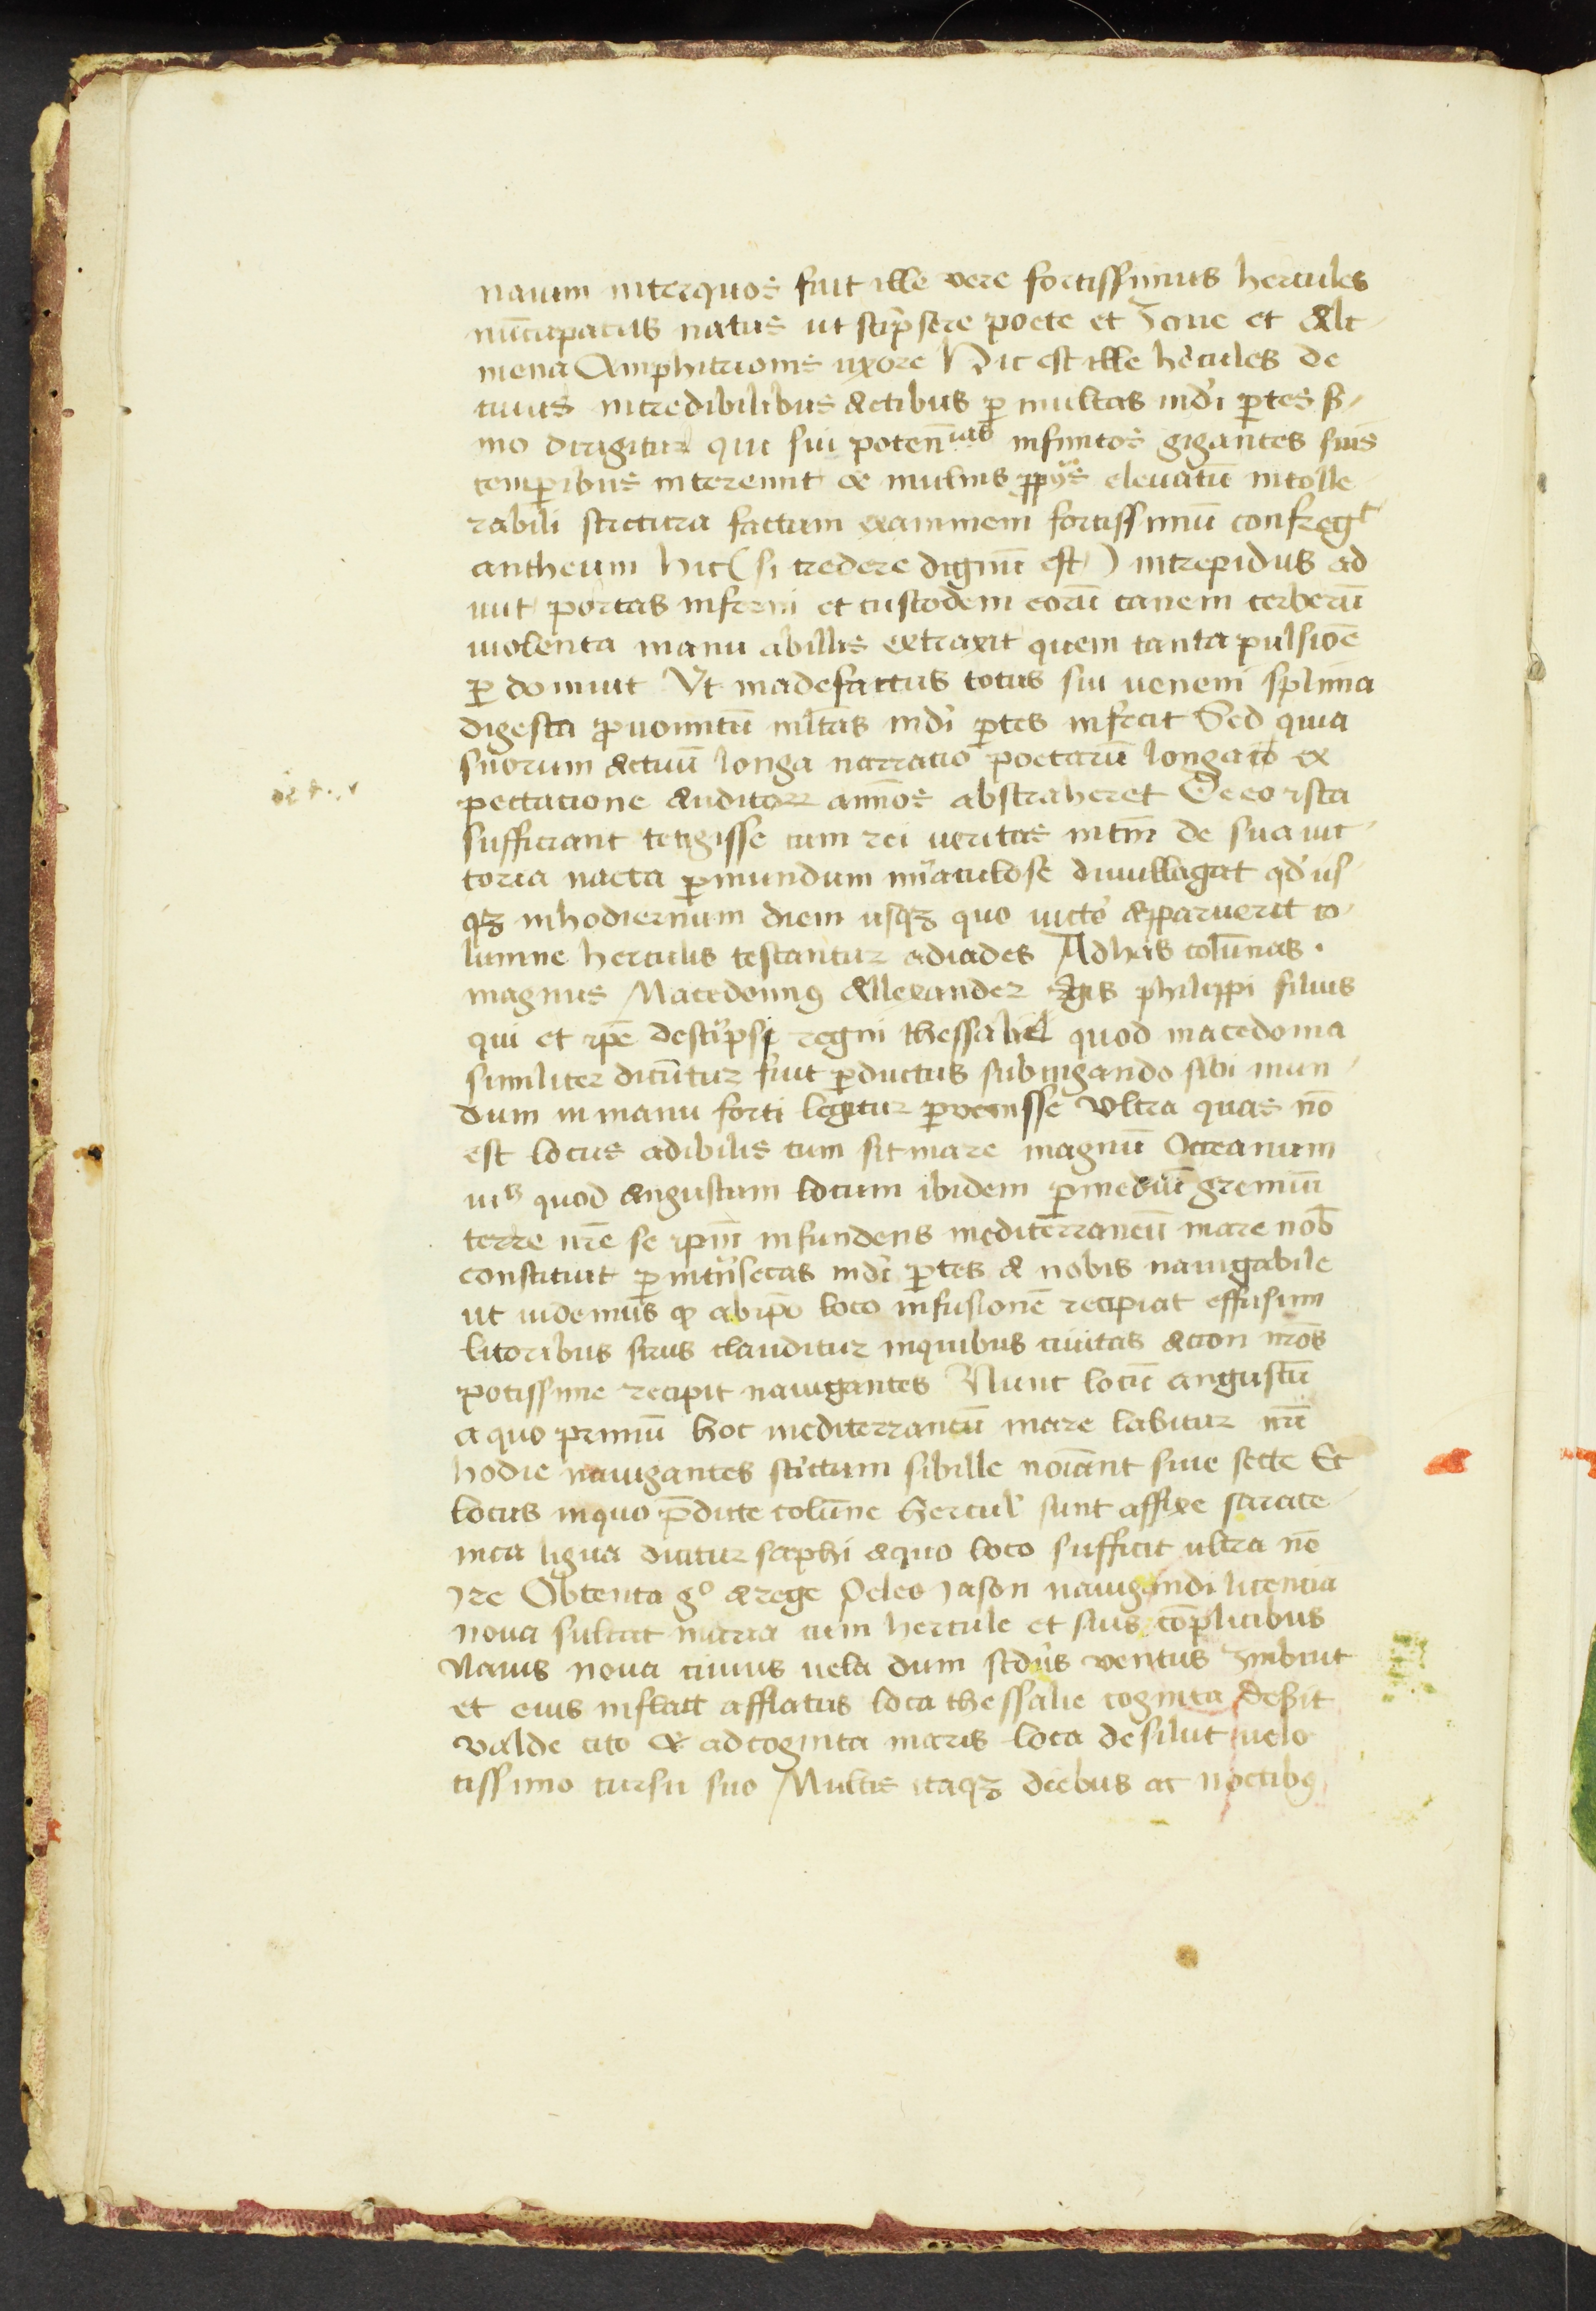 nauim interquos fuit ille vere fortissimus hercules
nūcupatus natus ut sc̃psere poete et Joue et Alc
mena Amphitrionis uxore Hic est ille h̓cules de
cuius incredibilibus actibus ꝑ multas mdi ꝑtes s̓
mo dirigitur qui sui poten̄ infinitos gigantes suis
temꝑibus interemit & mulnis ꝓpijs eleuatū intolle
rabili strictura factum exanimem fortissimū confregt
antheum hic (si credere dignū est) intrepidus ad
iuit portas inferni et custodem eorū canem cerberū
uiolenta manu abillis extraxit quem tanta pulsioē
ꝑ domuit Vt madefactus totus sui ueneni splīna
digesta ꝓuomitū mltas mdi ꝑtes infecit Sed quia
suorum actuū longa narratio poetarū longa io ex
pectacione auditorꝝ annos abstraheret De eo ista
sufficiant tetigisse cum rei ueritas intm̄ de sua uic
toria nacta ꝑmundum miraculose diuullagat qd us
qꝫ inhodiernum diem usqꝫ quo uictor apparuerit co
lumne herculis testantur adiades Ad has colūnas .
magnus Macedonius Allexander regis philippi filius
qui et ipē regni thessalie quod macedonia
similiter dicūtur fuit ꝑductus subiugando sibi mun
dum in manu forti legitur ꝑuenisse Vltra quas nō
est locus adibilis cum sit mare magnū Occeanum
uis quod angustum locum ibidem ꝑmediū gremiū
terre nrē se ipm̄ infundens mediterraneū mare nob̄
constituit ꝑ intrisecas mdi ꝑtes & nobis nauigabile
ut uidemus ꝙ abipō loco infusionē recipiat effusum
litoribus sirus clauditur inquibus ciuitas accon nrōs
potissime recipit nauigantes Nunc locū angustū
a quo primū hoc mediterraneū mare labitur nrē
hodie nauigantes strictum sibille noīant siue sette Et
locus inquo p̄dicte colūne Hercul̓ sunt affixe sarace
nica ligua dicitur saphi aquo loco sufficit ultra nō
Jre Obtenta gº arege Peleo Jason nauigandi licencia
noua sulcat maria cum hercule et suis cōplicibus
Nauis noua cuius uela dum scdus ventus Jmbuit
et eius inflatt afflatus loca thessalie cognita deseit
valde cito & adcognita maris loca desiluit uelo
tissimo cursu suo Multis itaqꝫ diebus ac noctibꝰ